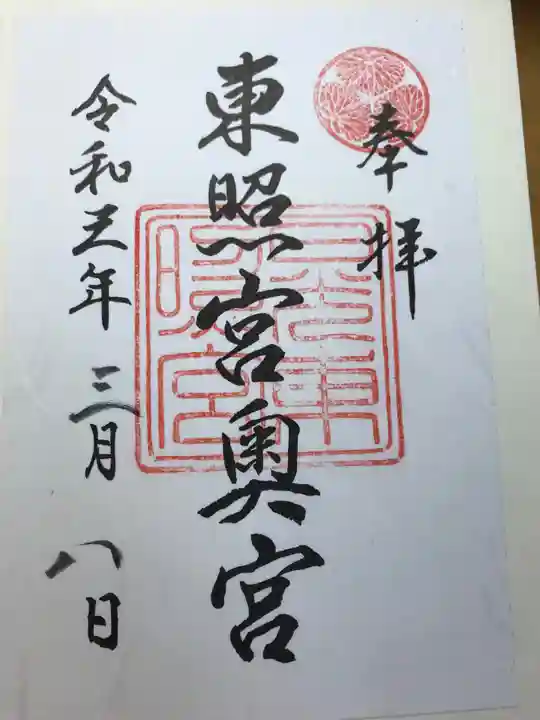 奉拝
東照宮奥宮
令和三年三月八日